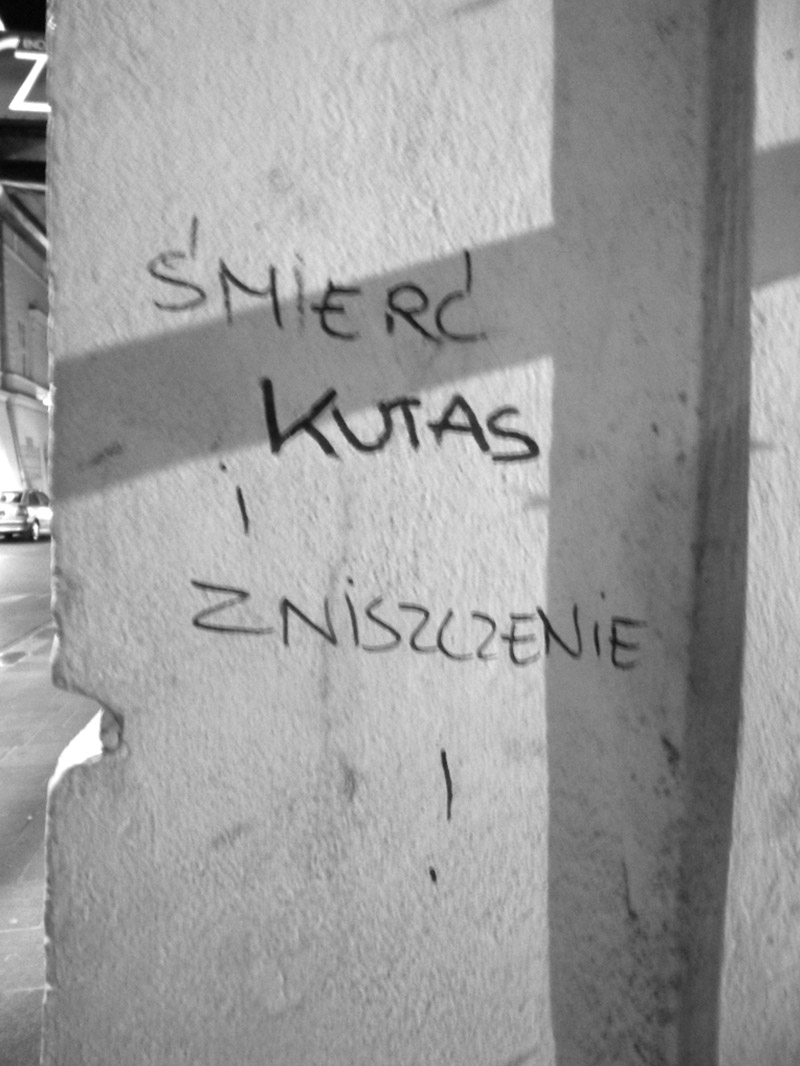 ŚMIERĆ
KUTAS
i
ZNISZCZENIE
!
Z